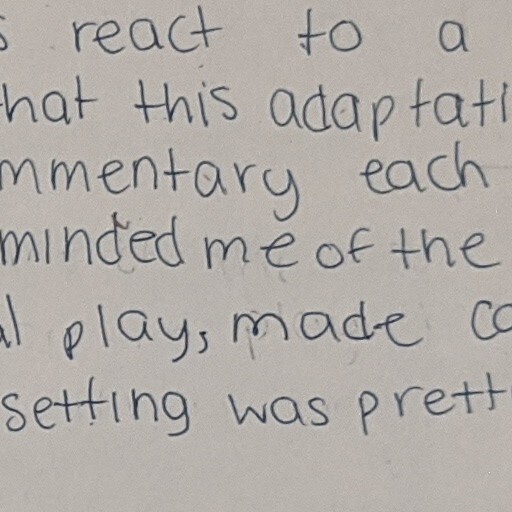 s react to a
hat this adaptati
mmentary each
minded me of the
l play, made co
setting was prett